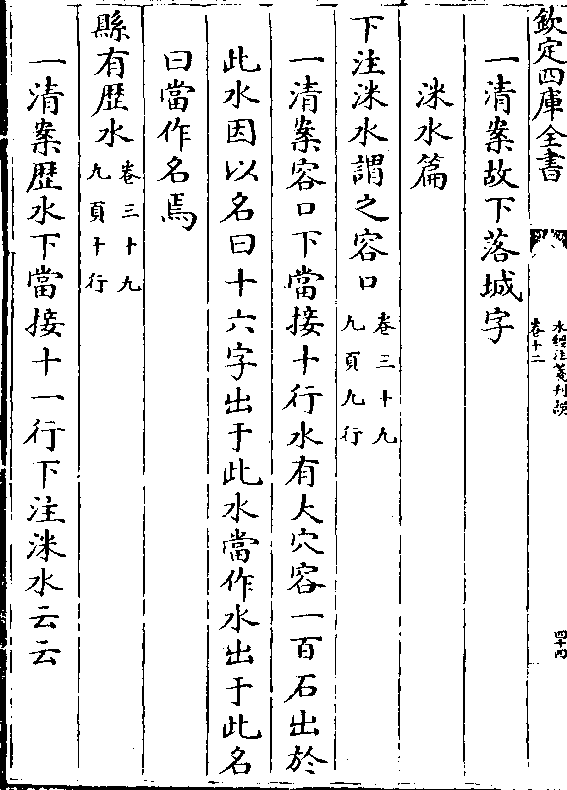 欽定四庫全書
水經注箋刊誤
卷十二
四十四
一清案故下落城字
洣水篇
下注洣水謂之容口卷三十九九頁九行
一清案容口下當接十行水有大穴容一百石出於
此水因以名曰十六字出于此水當作水出于此名
曰當作名焉
縣有歴水卷三十九九頁十行
一清案歴水下當接十一行下注洣水云云